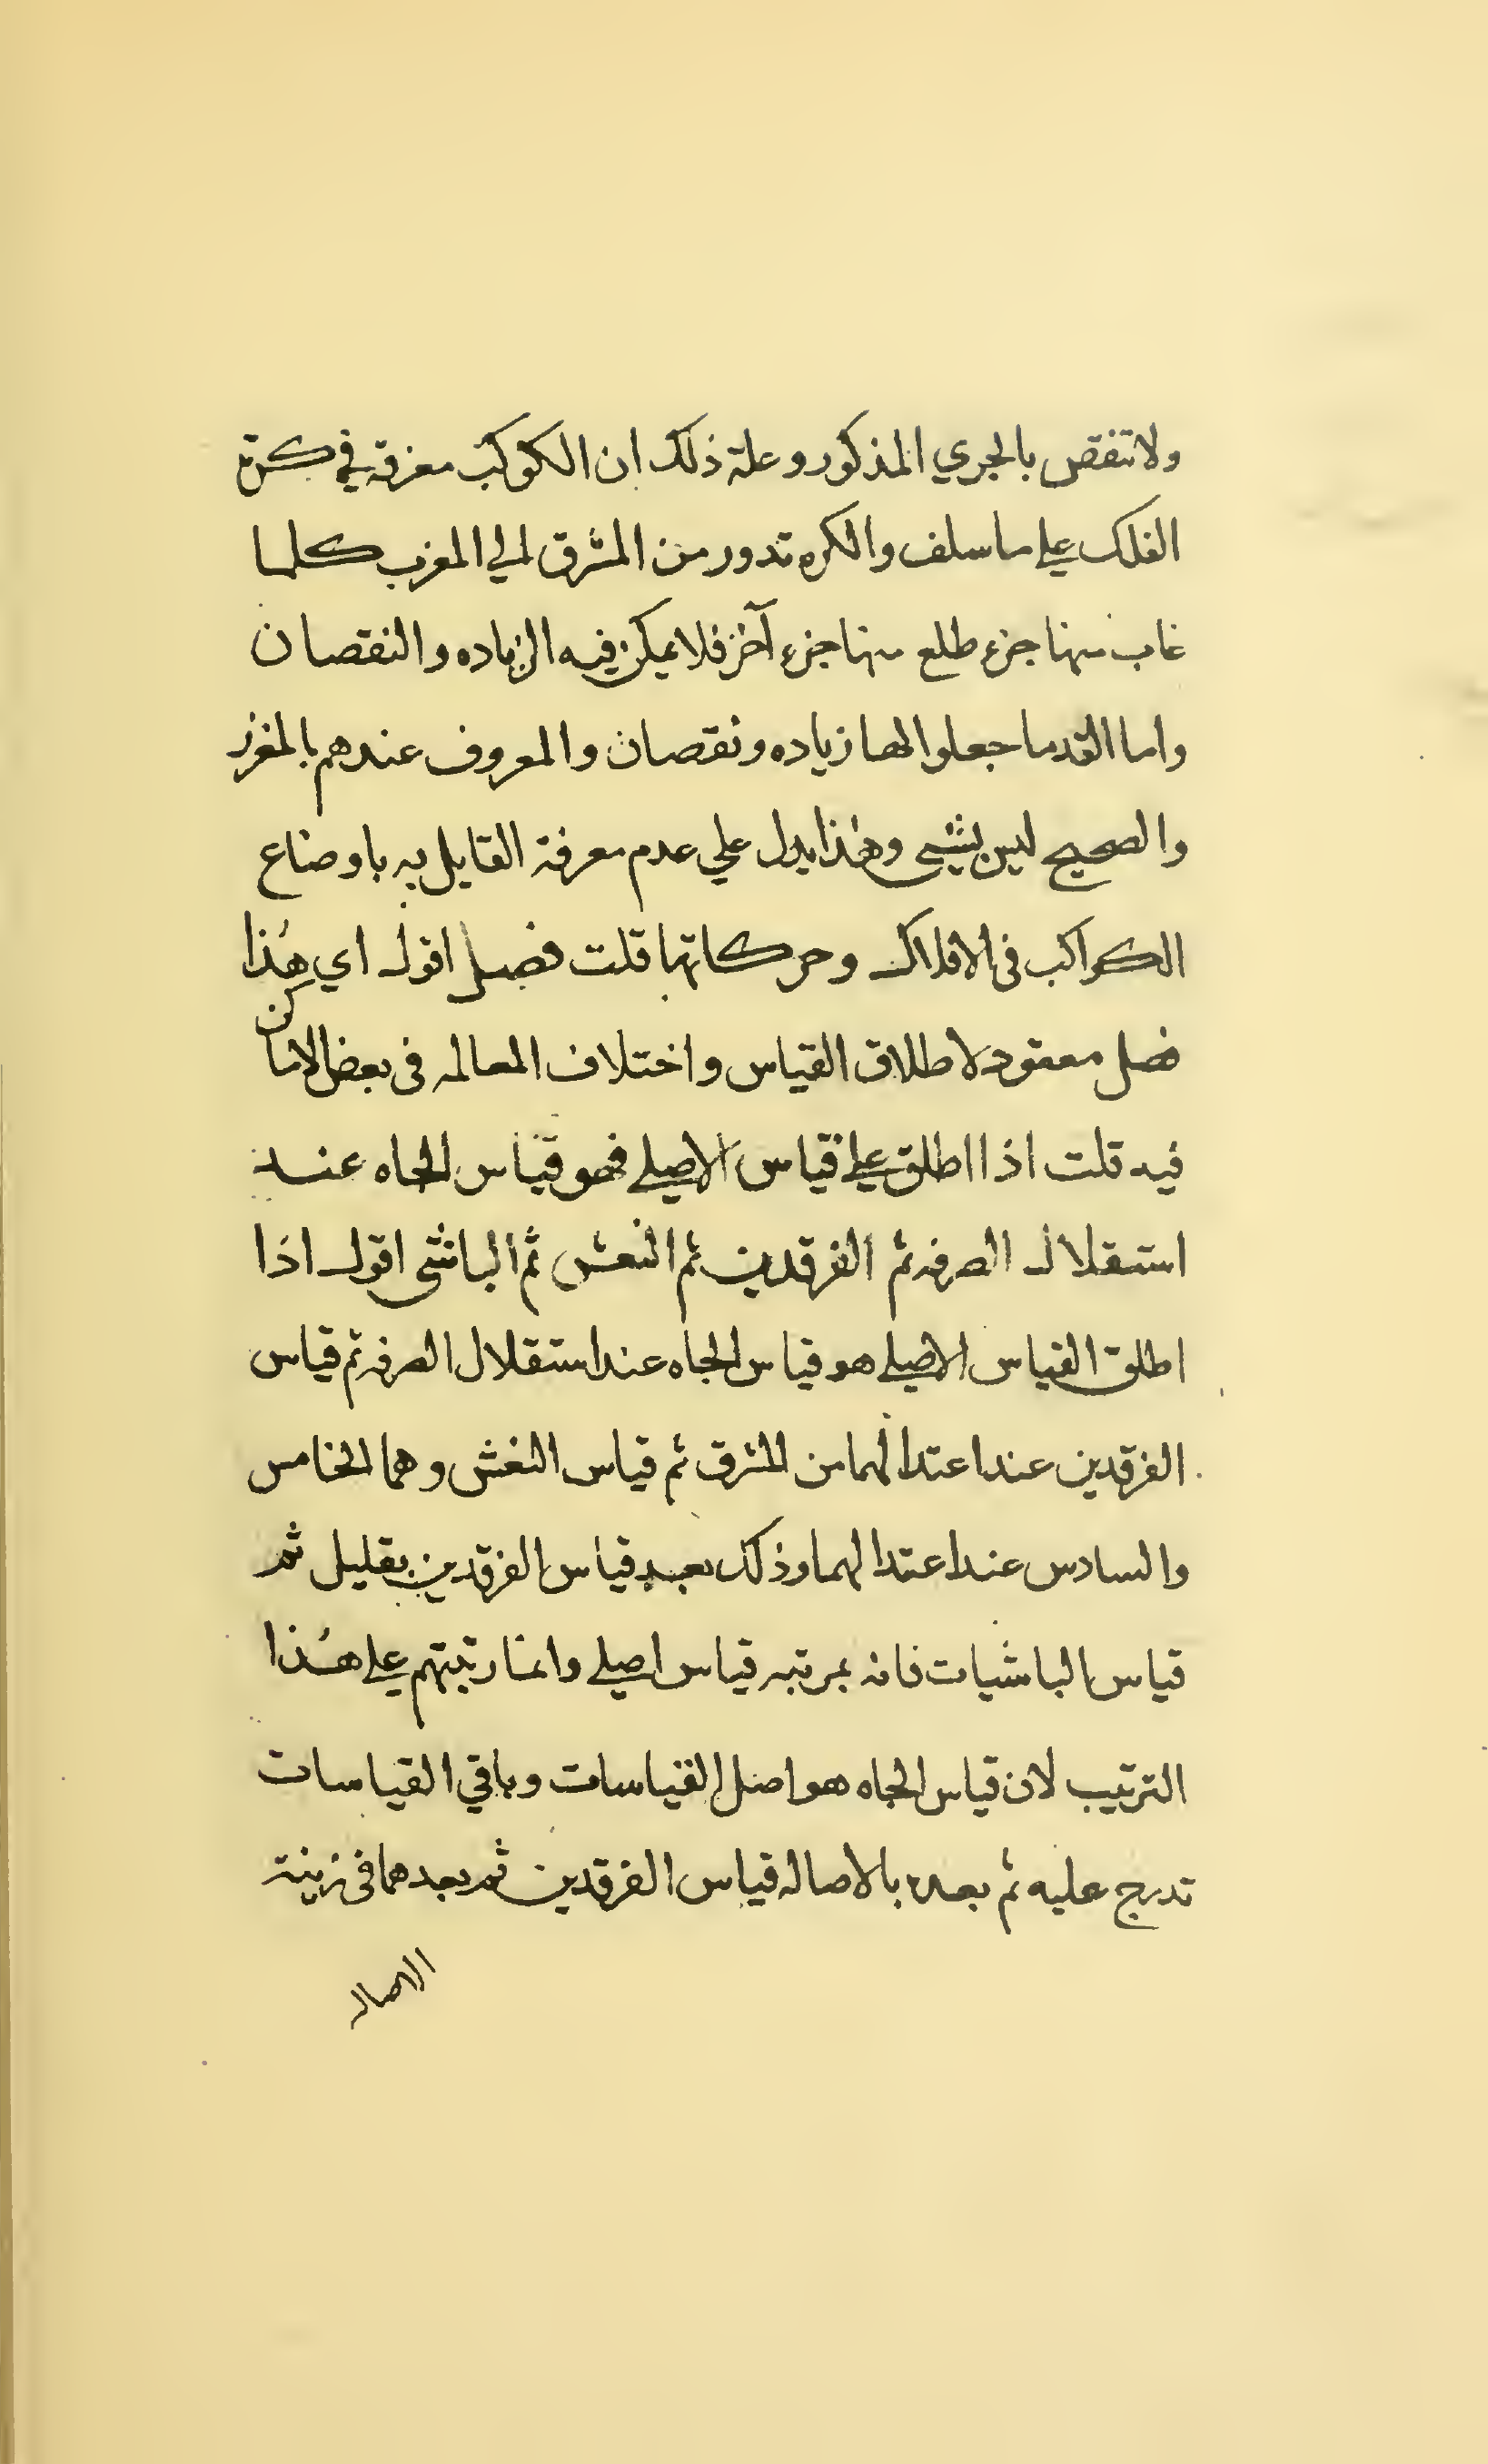 ولا تنقص بالجري المذكور وعلة ذلك ان الكوكب مغرقه في كرة
الفلك علي ما سلف والكره تدور من المشرق الي المغرب كلما
غاب منها جزء طلع منها جزء آخر فلا يمكن فيه الزياده والنقصان
واما القدما جعلوا لها زياده ونقصان والمعروف عندهم بالمغزر
والصحيح ليس بشي وهذا يدل علي عدم معرفة القايل به باوضاع
الكواكب في الافلاك وحركاتها قلت فصل اقول اي هذا
فصل معقود لاطلاق القياس واختلاف المعالمه في بعض الاماكن
فيه قلت اذا اطلق علي قياس الاصلي فهو قياس الجاه عند
استقلال الصرفه ثم الفرقدين ثم النعش ثم الباشي اقول اذا
اطلق القياس الاصلي هو قياس الجاه عند استقلال الصرفه ثم قياس
الفرقدين عند اعتدالهما من المشرق ثم قياس النعش وهما الخامس
والسادس عند اعتدالهما وذلك بعد قياس الفرقدين بقليل ثم
قياس الباشيات فانه بمرتبه قياس اصلي وانما رتبتهم علي هذا
الترتيب لان قياس الجاه هو اصل القياسات وباقي القياسات
تدرج عليه ثم بعده بالاصاله قياس الفرقدين ثم بعدهما في زينة
الاصاله